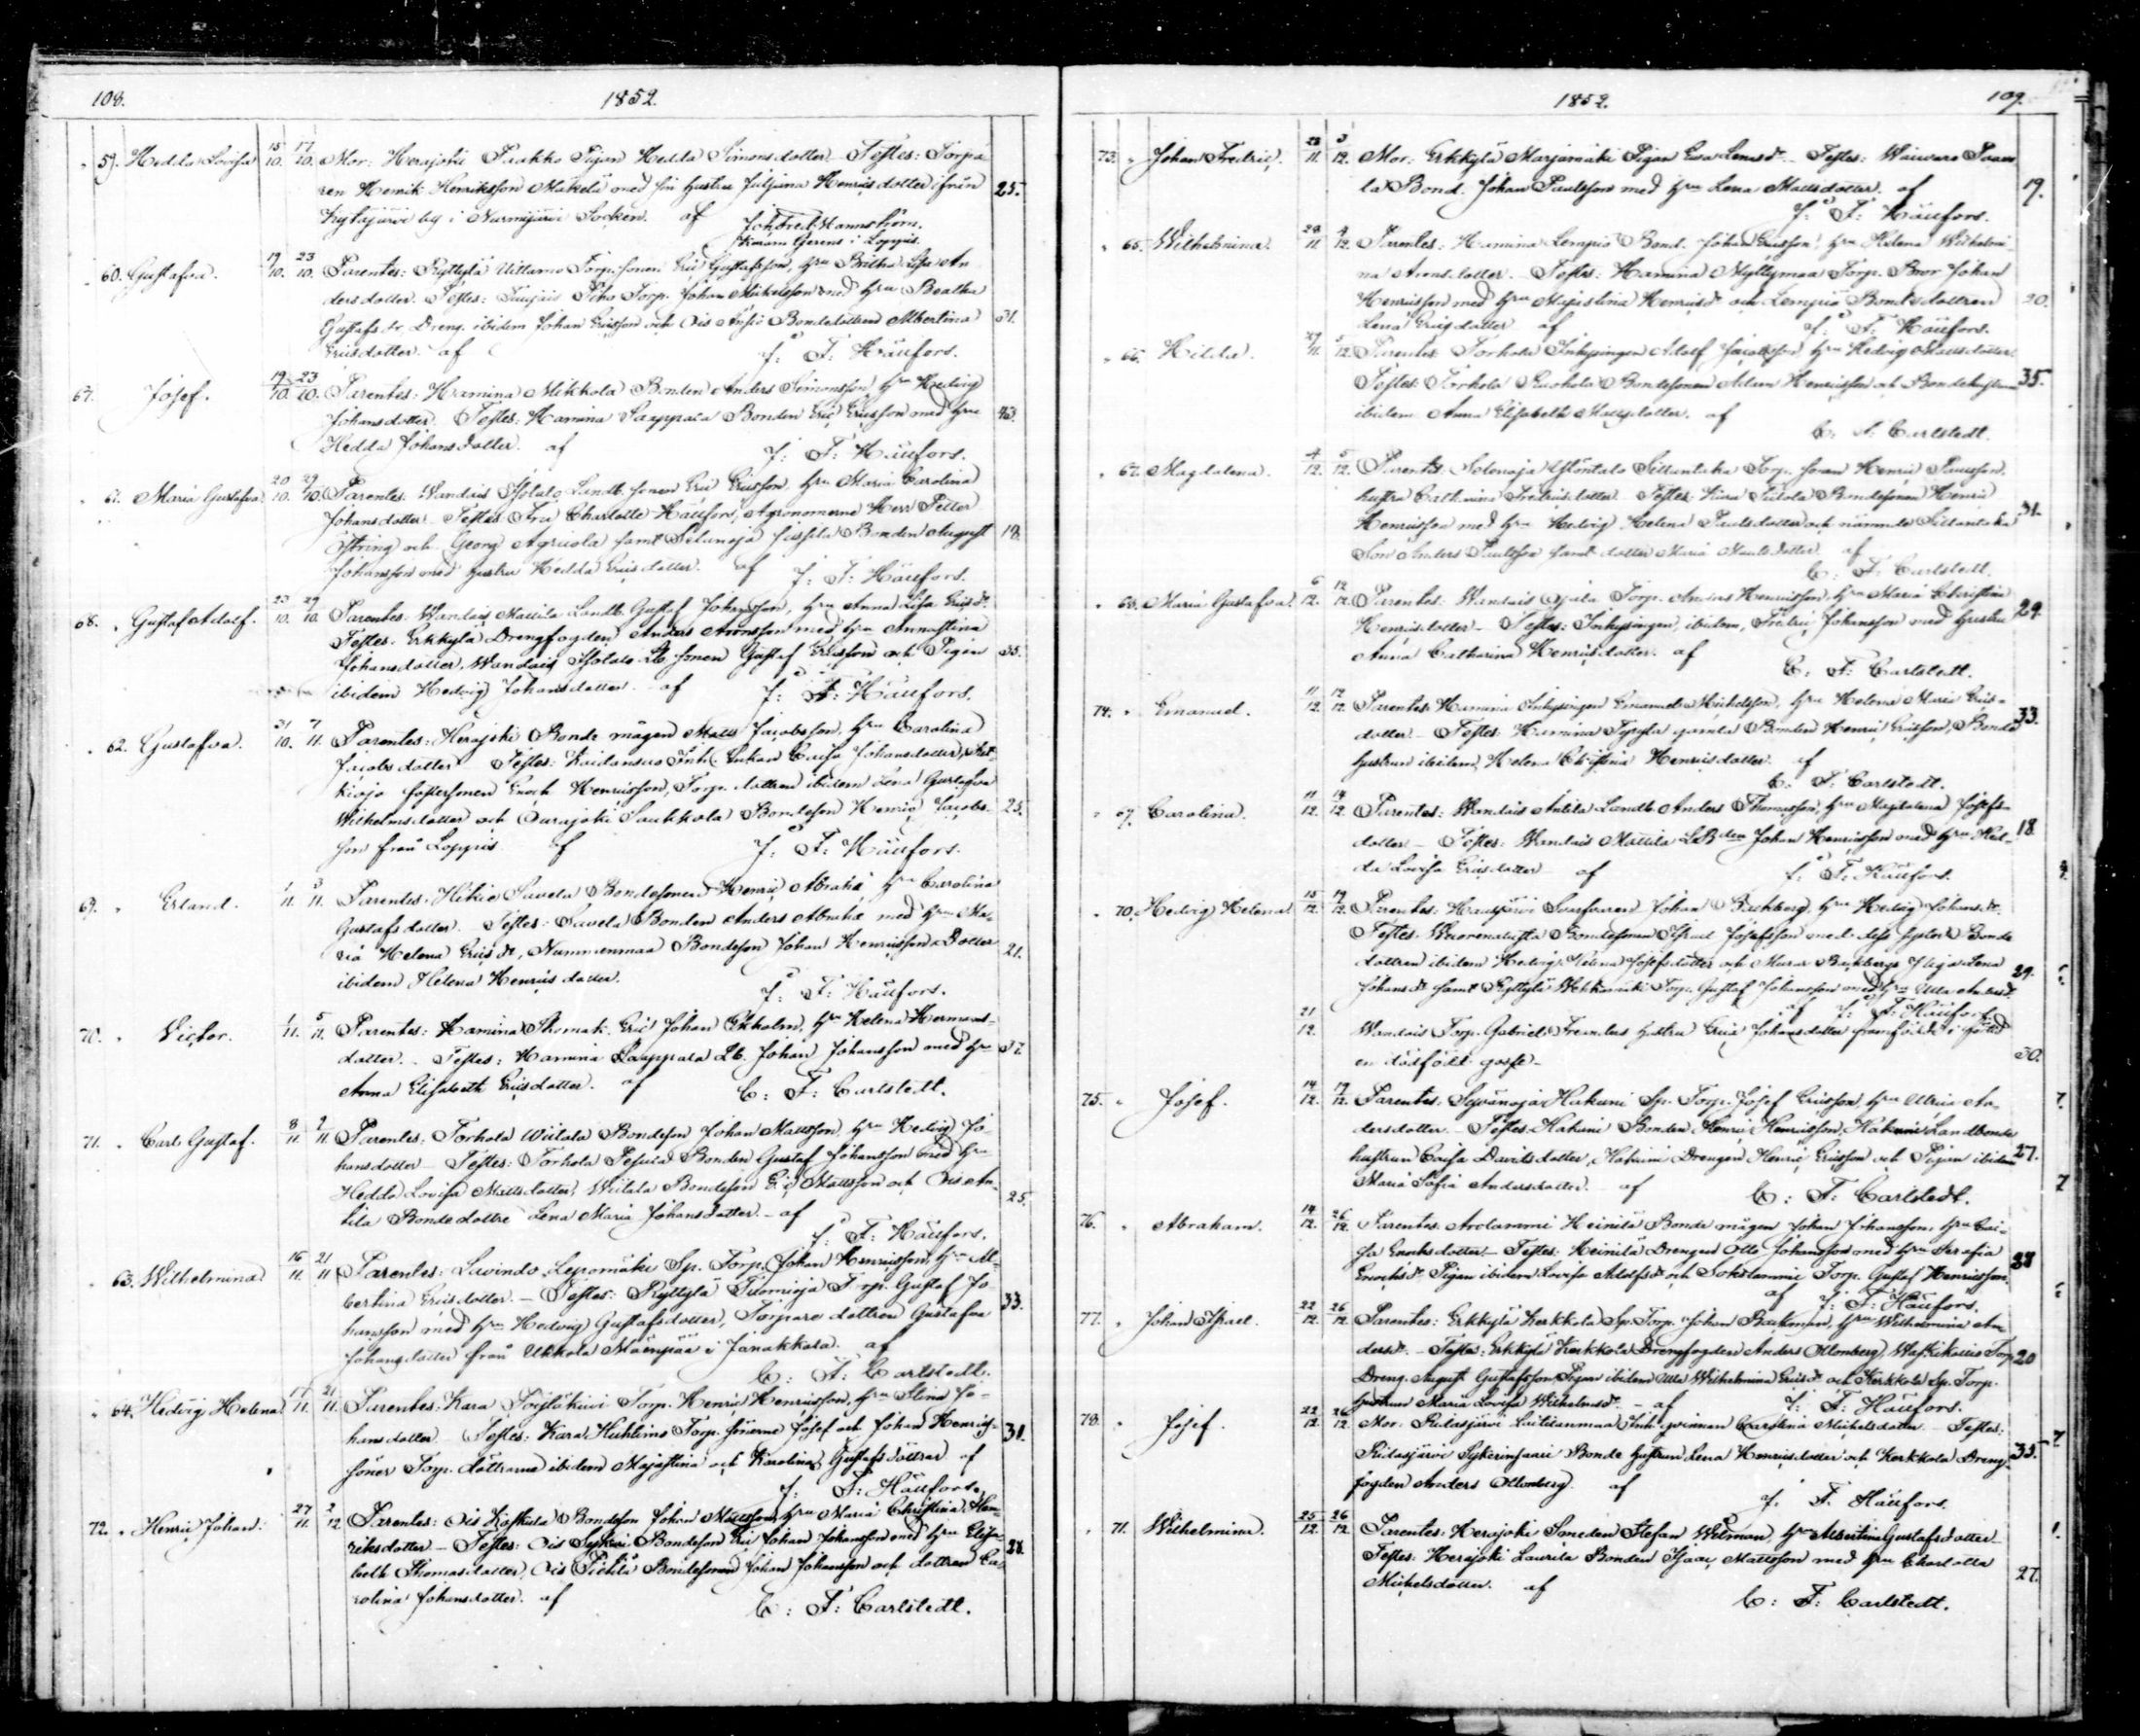 108. 1852.
59. Hedda Lovisa 15/10. 17/10. Mor: Herajoki Paakko Pigan Hedda Simonsdotter. Testes: Torpa
ren Henrik Henriksson Mäkelä med sin hustru Juliana Henricsdotter ifrån 25.
Kytajärvi by i Nurmijärvi Socken. af Joh. Fred.
i Loppis.
60. Gustafva. 19/10. 23/10. Parentes: Ryttylä Torp. sonen Eric Gustafsson, hru Britha Lisa An
dersdotter. Testes: Torp. Johan Michelsson med hru Beatha
Gustafsdr. Dreng. ibidem Johan Ericsson och Ois Bondedottren Albertina 31.
Ericsdotter. af J: F: Häufors.
67. Josef. 19/10. 23/10. Parentes: Hamina Mikkola Bonden Anders Simonsson, hru Hedvig
Johansdotter. Testes: Hamina Sappala Bonden Eric Ericsson med hru 43.
Hedda Johansdotter. af J: F: Häufors.
61. Maria Gustafva. 20/10. 29/10. Parentes: Wandais Isotalo Landb. sonen Eric Ericsson, hru Maria Carolina
Johansdotter. Testes: Fru Charlotte Häufors, Agronomerne Herr Petter
Östring och Georg Agricola samt Selänoja Bonden August 18.
Johansson med hustru Hedda Ericsdotter. af J: F: Häufors.
68. Gustaf Adolf. 23/10. 29/10. Parentes: Wandais Mattila Landb. Gustaf Johansson, hru Anna Lisa Ericsdr.
Testes. Erkkylä Drengfogden Anders Aronsson med hru Annastina
Johansdotter, Wandais Isotalo Lb. sonen Gustaf Ericsson och Pigan 35.
ibidem Hedvig Johansdotter. af J: F: Häufors.
62. Gustafva. 31/10. 7/11. Parentes: Herajoki Bonde mågen Matts Jacobsson, hru Carolina
Jacobsdotter. Testes: Inh. Enkan Caisa Johansdotter,
fostersonen Enoch Henricsson, Torp. dottren ibidem Lena Gustafva
Wilhelmsdotter och Ourajoki Saukkola Bondeson Henric Jacobs- 25.
son från Loppis af J: F: Häufors.
69. Erland. 1/11. 3/11. Parentes: Hikiä Savela Bondesonen Henric Abrahs. hru Carolina
Gustafsdotter. Testes: Savela Bonden Anders Abrahs. med hru Ma-
ria Helena Ericsdr, Nummenmaa Bondeson Johan Henricsson Dotter 21.
ibidem Helena Henricsdotter. J: F: Häufors.
70. Victor. 1/11. 5/11. Parentes: Hamina Skomak. Eric Johan Ekholm, hru Helena Hermans-
dotter. Testes: Hamina Sappala Lb. Johan Johansson med hru 37.
Anna Elisabeth Ericsdotter. af C: F: Carlstedt.
71. Carl Gustaf. 8/11. 9/11. Parentes: Torhola Wiitala Bondeson Johan Mattsson, hru Hedvig Jo-
hansdotter. Testes: Torhola Pesula Bonden Gustaf Johansson med hru
Hedda Lovisa Mattsdotter, Wiitala Bondeson Eric Mattsson och Ois An-
tila Bondedottre Lena Maria Johansdotter. af 25.
J: F: Häufors.
63. Wilhelmina. 16/11. 21/11. Parentes: Lavindo Lepomäki Sp. Torp. Johan Henricsson, hru Al-
bertina Ericsdotter. Testes: Ryttylä Torp. Gustaf Jo
hansson med hru Hedvig Gustafsdotter, Torpare dottren Gustafva 33.
Johansdotter från Ukkola i Janakkala. af
C: F: Carlstedt.
64. Hedvig Helena. 17/11. 21/11. Parentes: Kara Torp. Henric Henricsson, hru Stina Jo-
hansdotter. Testes: Kara Torp. sönerne Josef och Johan Henrics- 31.
söner Torp. döttrarne ibidem Majastina och Karolina Gustafsdöttrar af
J: F: Häufors.
72. Henric Johan. 27/11. 2/12. Parentes: Ois Koskula Bondeson Johan Mattsson, hru Maria Christina Hen-
ricsdotter. Testes: Ois Bondeson Eric Johan Johansson med hru Elisa- 28.
beth Thomasdotter, Ois Pietilä Bondesonen Johan Johansson och dottren Ca-
rolina Johansdotter. af C: F: Carlstedt.
1852. 109.
73. Johan Fredric. 28/11. 3/12. Mor: Erkkylä Marjamäki Pigan Eva Lenadr. Testes:
la Bond. Johan Paulsson med hru Lena Mattsdotter. af 19.
J: F: Häufors.
65. Wilhelmina. 28/11. 4/12. Parentes: Hamina Lempiö Bond. Johan Ericsson, hru Helena Wilhelmi
na Aronsdotter. Testes: Hamina Myllymaa Torp. Bror Johan
Henricsson med hru Majastina Henricsdr. och Lempiö Bondedottren 20.
Lena Ericsdotter af J: F: Häufors.
66. Hilda. 29/11. 5/12. Parentes: Torhola Inhysingen Adolf Jacobsson, hru Hedvig Mattsdotter.
Testes: Torhola Bondesonen Adam Henricsson och Bondehustrun 35.
ibidem Anna Elisabeth Mattsdotter. af
C: F: Carlstedt.
67. Magdalena. 4/12. 5/12. Parentes: Selänoja Ylöntalo Sillantaka Torp. sonen Henric Paulsson,
hustru Catharina Fredricsdotter. Testes: Kara Bondesonen Henric
Henricsson med hru Hedvig Helena Paulsdotter och nämnde Sillantaka 31.
Son Anders Paulsson samt dotter Maria Paulsdotter. af
C: F: Carlstedt.
68. Maria Gustafva. 6/12. 12/12. Parentes: Wandais Ojala Torp. Anders Henricsson, hru Maria Christina
Henricsdotter. Testes: Inhysingen, ibidem, Fredric Johansson med hustru 29.
Anna Catharina Henricsdotter. af
C: F: Carlstedt.
74. Emanuel. 11/12. 12/12. Parentes: Hamina Inhysingen Emanuel Michelsson, hru Helena Maria Erics-
dotter. Testes: Hamina gamla Bonden Henric Ericsson, Bonde 33.
hustrun ibidem, Helena Christina Henricsdotter. af
C: F: Carlstedt.
69. Carolina. 11/12. 14/12. Parentes: Wandais Antila Landb. Anders Thomasson, hru Magdalena Josefs-
dotter. Testes: Wandais Mattila LBden Johan Henricsson med hru Hed- 18.
da Lovisa Ericsdotter af J: F: Häufors.
70. Hedvig Helena. 15/12. 19/12. Parentes: Hausjärvi Svarfvaren Johan Backberg, hru Hedvig Johansdr.
Testes. Bondesonen Israel Josefsson med dess syster Bonde
dottren ibidem Hedvig Helena Josefsdotter och Murar Backbergs Piga Lena
Johansdr samt Ryttylä Torp. Gustaf Johansson med hru Ulla Andersdr. 29.
af J: F: Häufors.
21/12. Wandais Torp. Gabriel hustru Eva Johansdotter framfödde
en dödfödt gosse. 30.
75. Josef. 14/12. 19/12. Parentes: Syvänoja Hakuni Sp. Torp. Josef Ericsson, hru Ulrica An-
dersdotter. Testes: Hakuni Bonden Henric Henricsson, Hakuni Landbonde
hustrun Caisa Davidsdotter, Hakuni Drengen Henric Ericsson och Pigan ibidem 27.
Maria Sofia Andersdotter. af C: F: Carlstedt.
76. Abraham. 14/12. 26/12. Parentes: Arolammi Heinilä Bonde mågen Johan Johansson, hru Cai-
sa Enochsdotter. Testes: Heinilä Drengen Otto Johansson med hru Serafia
Enochsdr. Pigan ibidem Lovisa Adolfsdr och Torp. Gustaf Henricsson. 28
af J: F: Häufors.
77. Johan Israel. 22/12. 26/12. Parentes: Erkkylä Kerkkola Sp. Torp. Johan Backman, hru Wilhelmina An
dersdr. Testes: Erkkylä Kerkkola Drengfogden Anders Ollonberg, Torp. 20
Dreng. August Gustafsson, Pigan ibidem Ulla Wilhelmina Ericsdr och Kerkkola Sp. Torp.
hustrun Maria Lovisa Wilhelmsdr. af J: F: Häufors.
78. Josef. 22/12. 26/12. Mor: Ridasjärvi Inh. qvinnan Carstina Michelsdotter. Testes:
Ridasjärvi Bonde hustrun Lena Henricsdotter och Kerkkola Dreng- 35.
fogden Anders Ollonberg. af J: F. Häufors.
71. Wilhelmina. 25/12. 26/12. Parentes: Herajoki Smeden Stefan Widman, hru Albertina Gustafsdotter.
Testes: Herajoki Laurila Bonden Isaac Mattsson med hru Charlotta 27.
Michelsdotter. af C: F: Carlstedt.